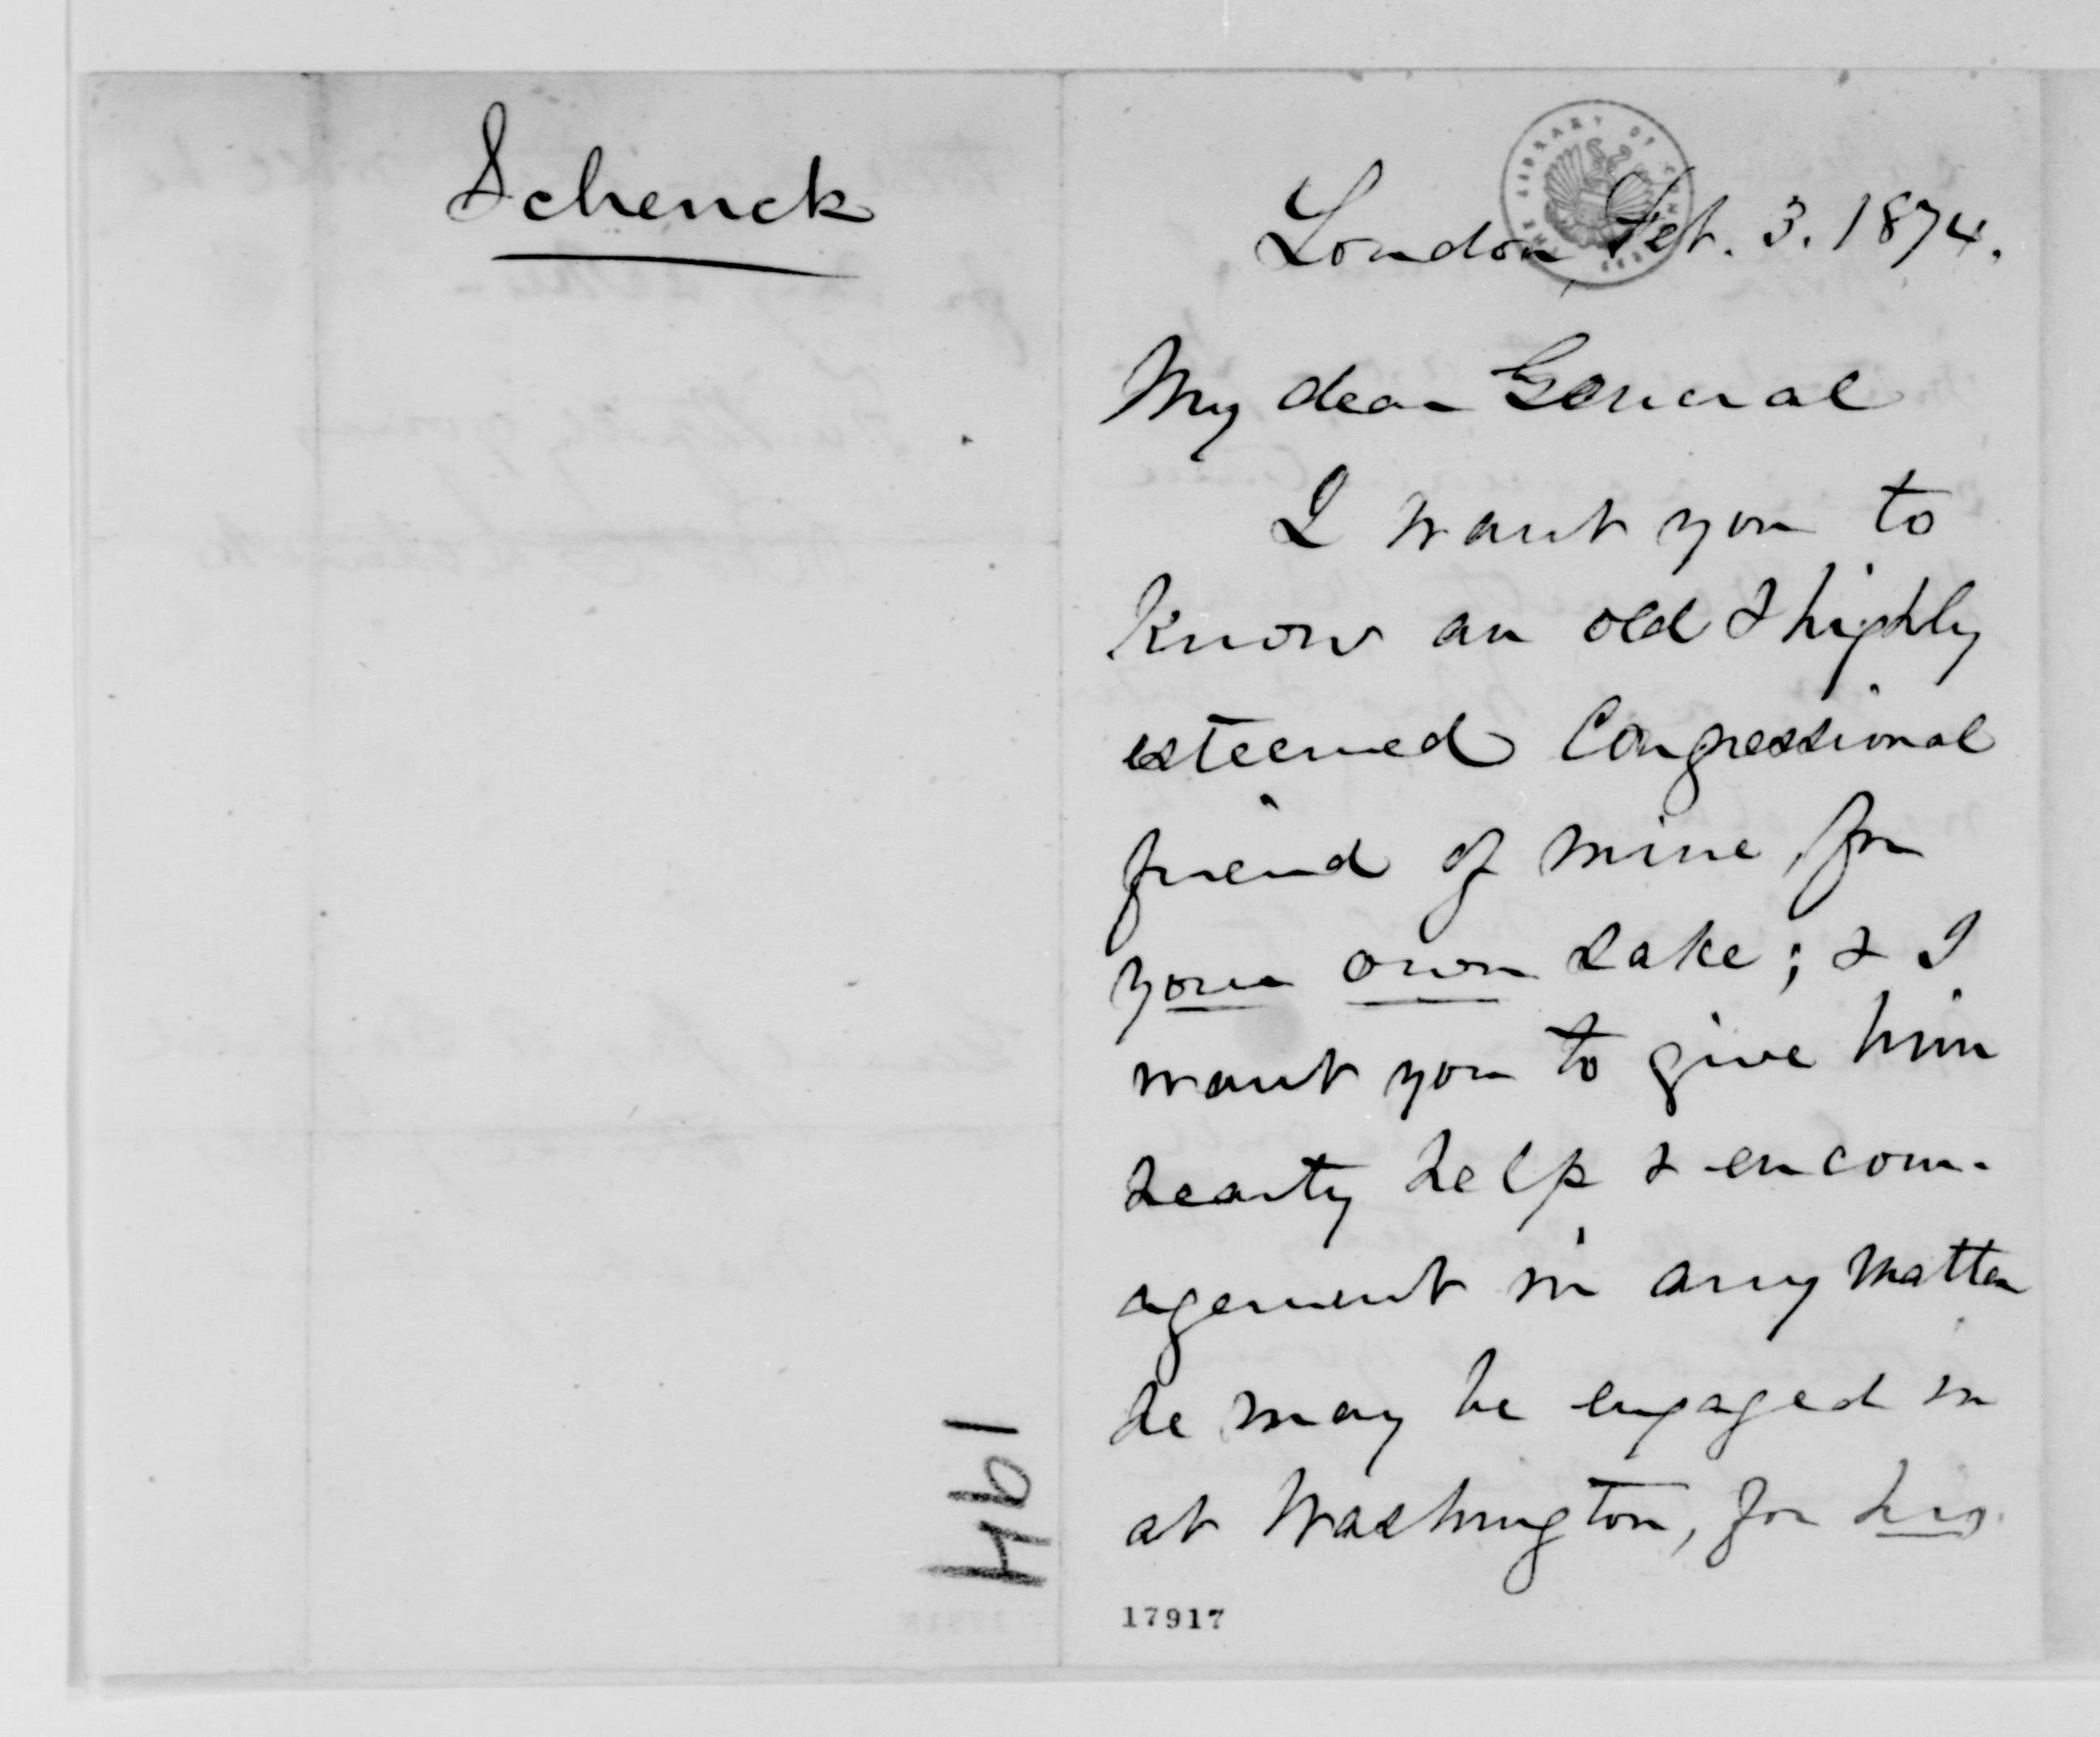 Schenck
London, Feb. 3. 1874.
My dear General
I want you to
know an old & highly
esteemed Congressional
friend of mine, for
your own sake; & I
want you to give him
hearty help & encour-
agement in any matter
he may be engaged in
at Washington, for his
17917